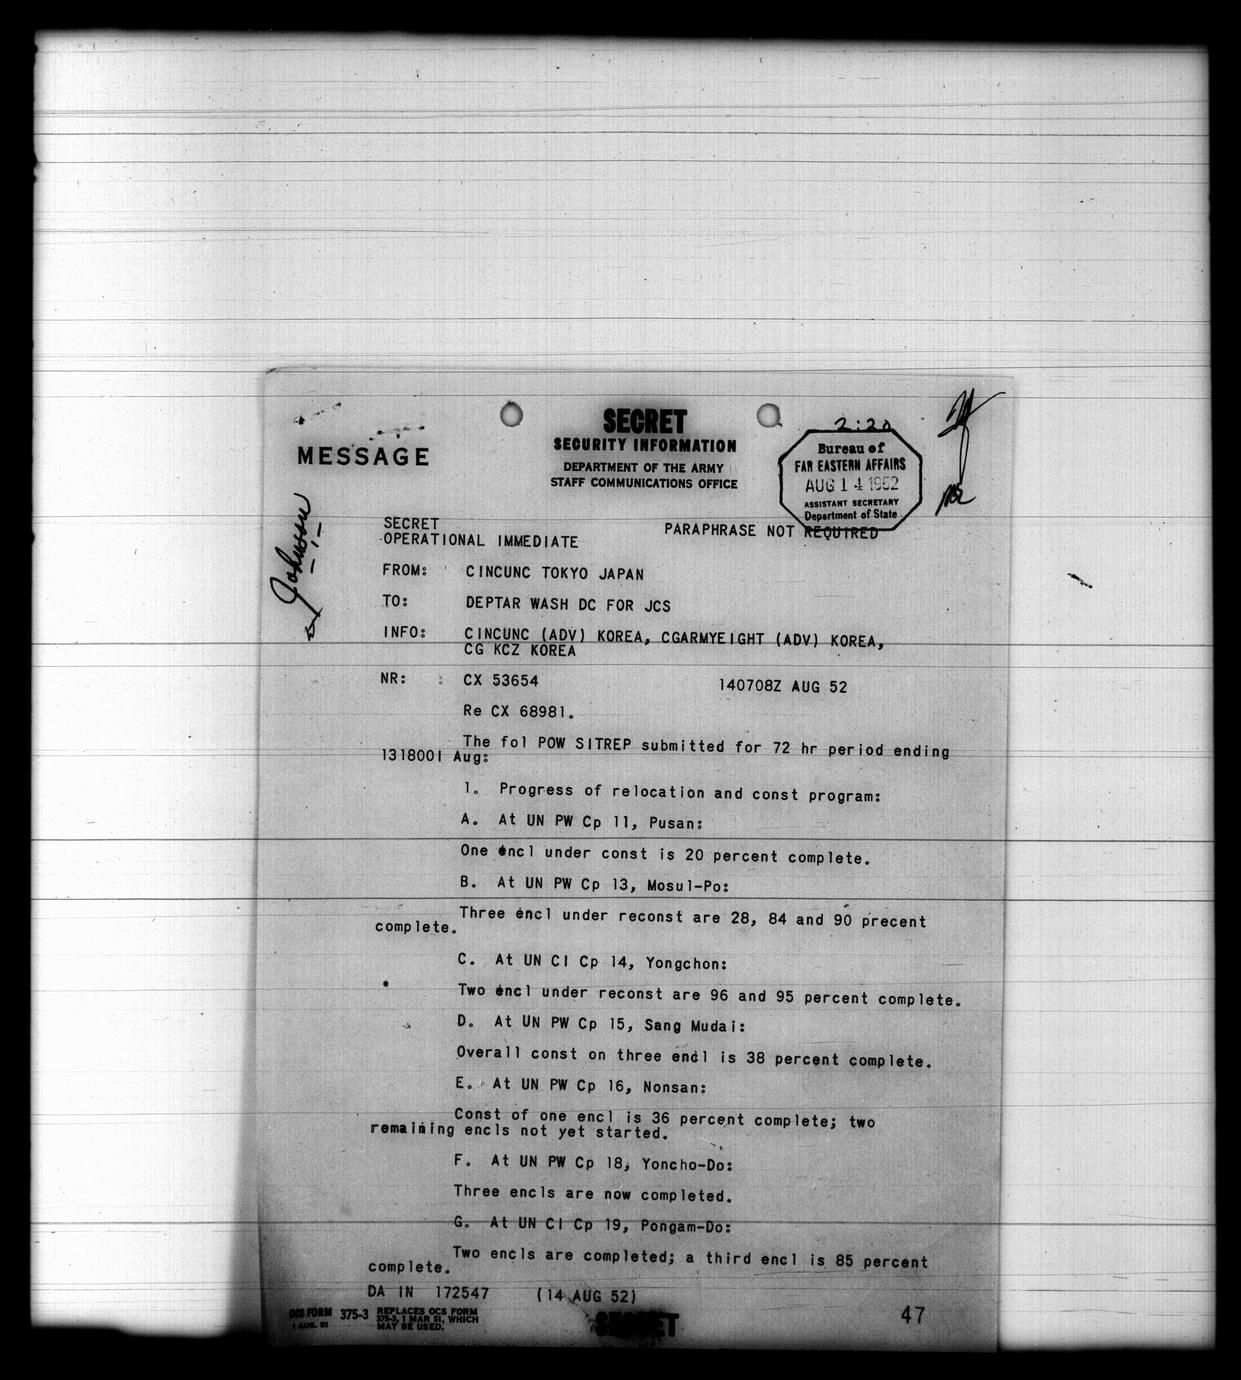 2:20
SECRET
SECURITY INFORMATION
DEPARTMENT OF THE ARMY
STAFF COMMUNICATIONS OFFICE
MESSAGE
Bureau of
FAR EASTERN AFFAIRS
AUG 14 1952
ASSISTANT SECRETARY
Department of State
Johnson
SECRET
OPERATIONAL IMMEDIATE
PARAPHRASE NOT REQUIRED
FROM: CINCUNC TOKYO JAPAN
TO: DEPTAR WASH DC FOR JCS
INFO: CINCUNC (ADV) KOREA, CGARMYEIGHT (ADV) KOREA,
CG KCZ KOREA
NR: : CX 53654 140708Z AUG 52
Re CX 68981.
The fol POW SITREP submitted for 72 hr period ending
131800I Aug:
1. Progress of relocation and const program:
A. At UN PW Cp 11, Pusan:
One encl under const is 20 percent complete.
B. At UN PW Cp 13, Mosul-Po:
Three encl under reconst are 28, 84 and 90 precent
complete.
C. At UN CI Cp 14, Yongchon:
Two encl under reconst are 96 and 95 percent complete.
D. At UN PW Cp 15, Sang Mudai:
Overall const on three encl is 38 percent complete.
E. At UN PW Cp 16, Nonsan:
Const of one encl is 36 percent complete; two
remaining encls not yet started.
F. At UN PW Cp 18, Yoncho-Do:
Three encls are now completed.
G. At UN CI Cp 19, Pongam-Do:
Two encls are completed; a third encl is 85 percent
complete.
DA IN 172547 (14 AUG 52)
OCS FORM 375-3 REPLACES OCS FORM
1 AUG. 51 375-3, 1 MAR 51, WHICH
MAY BE USED.
SECRET
47